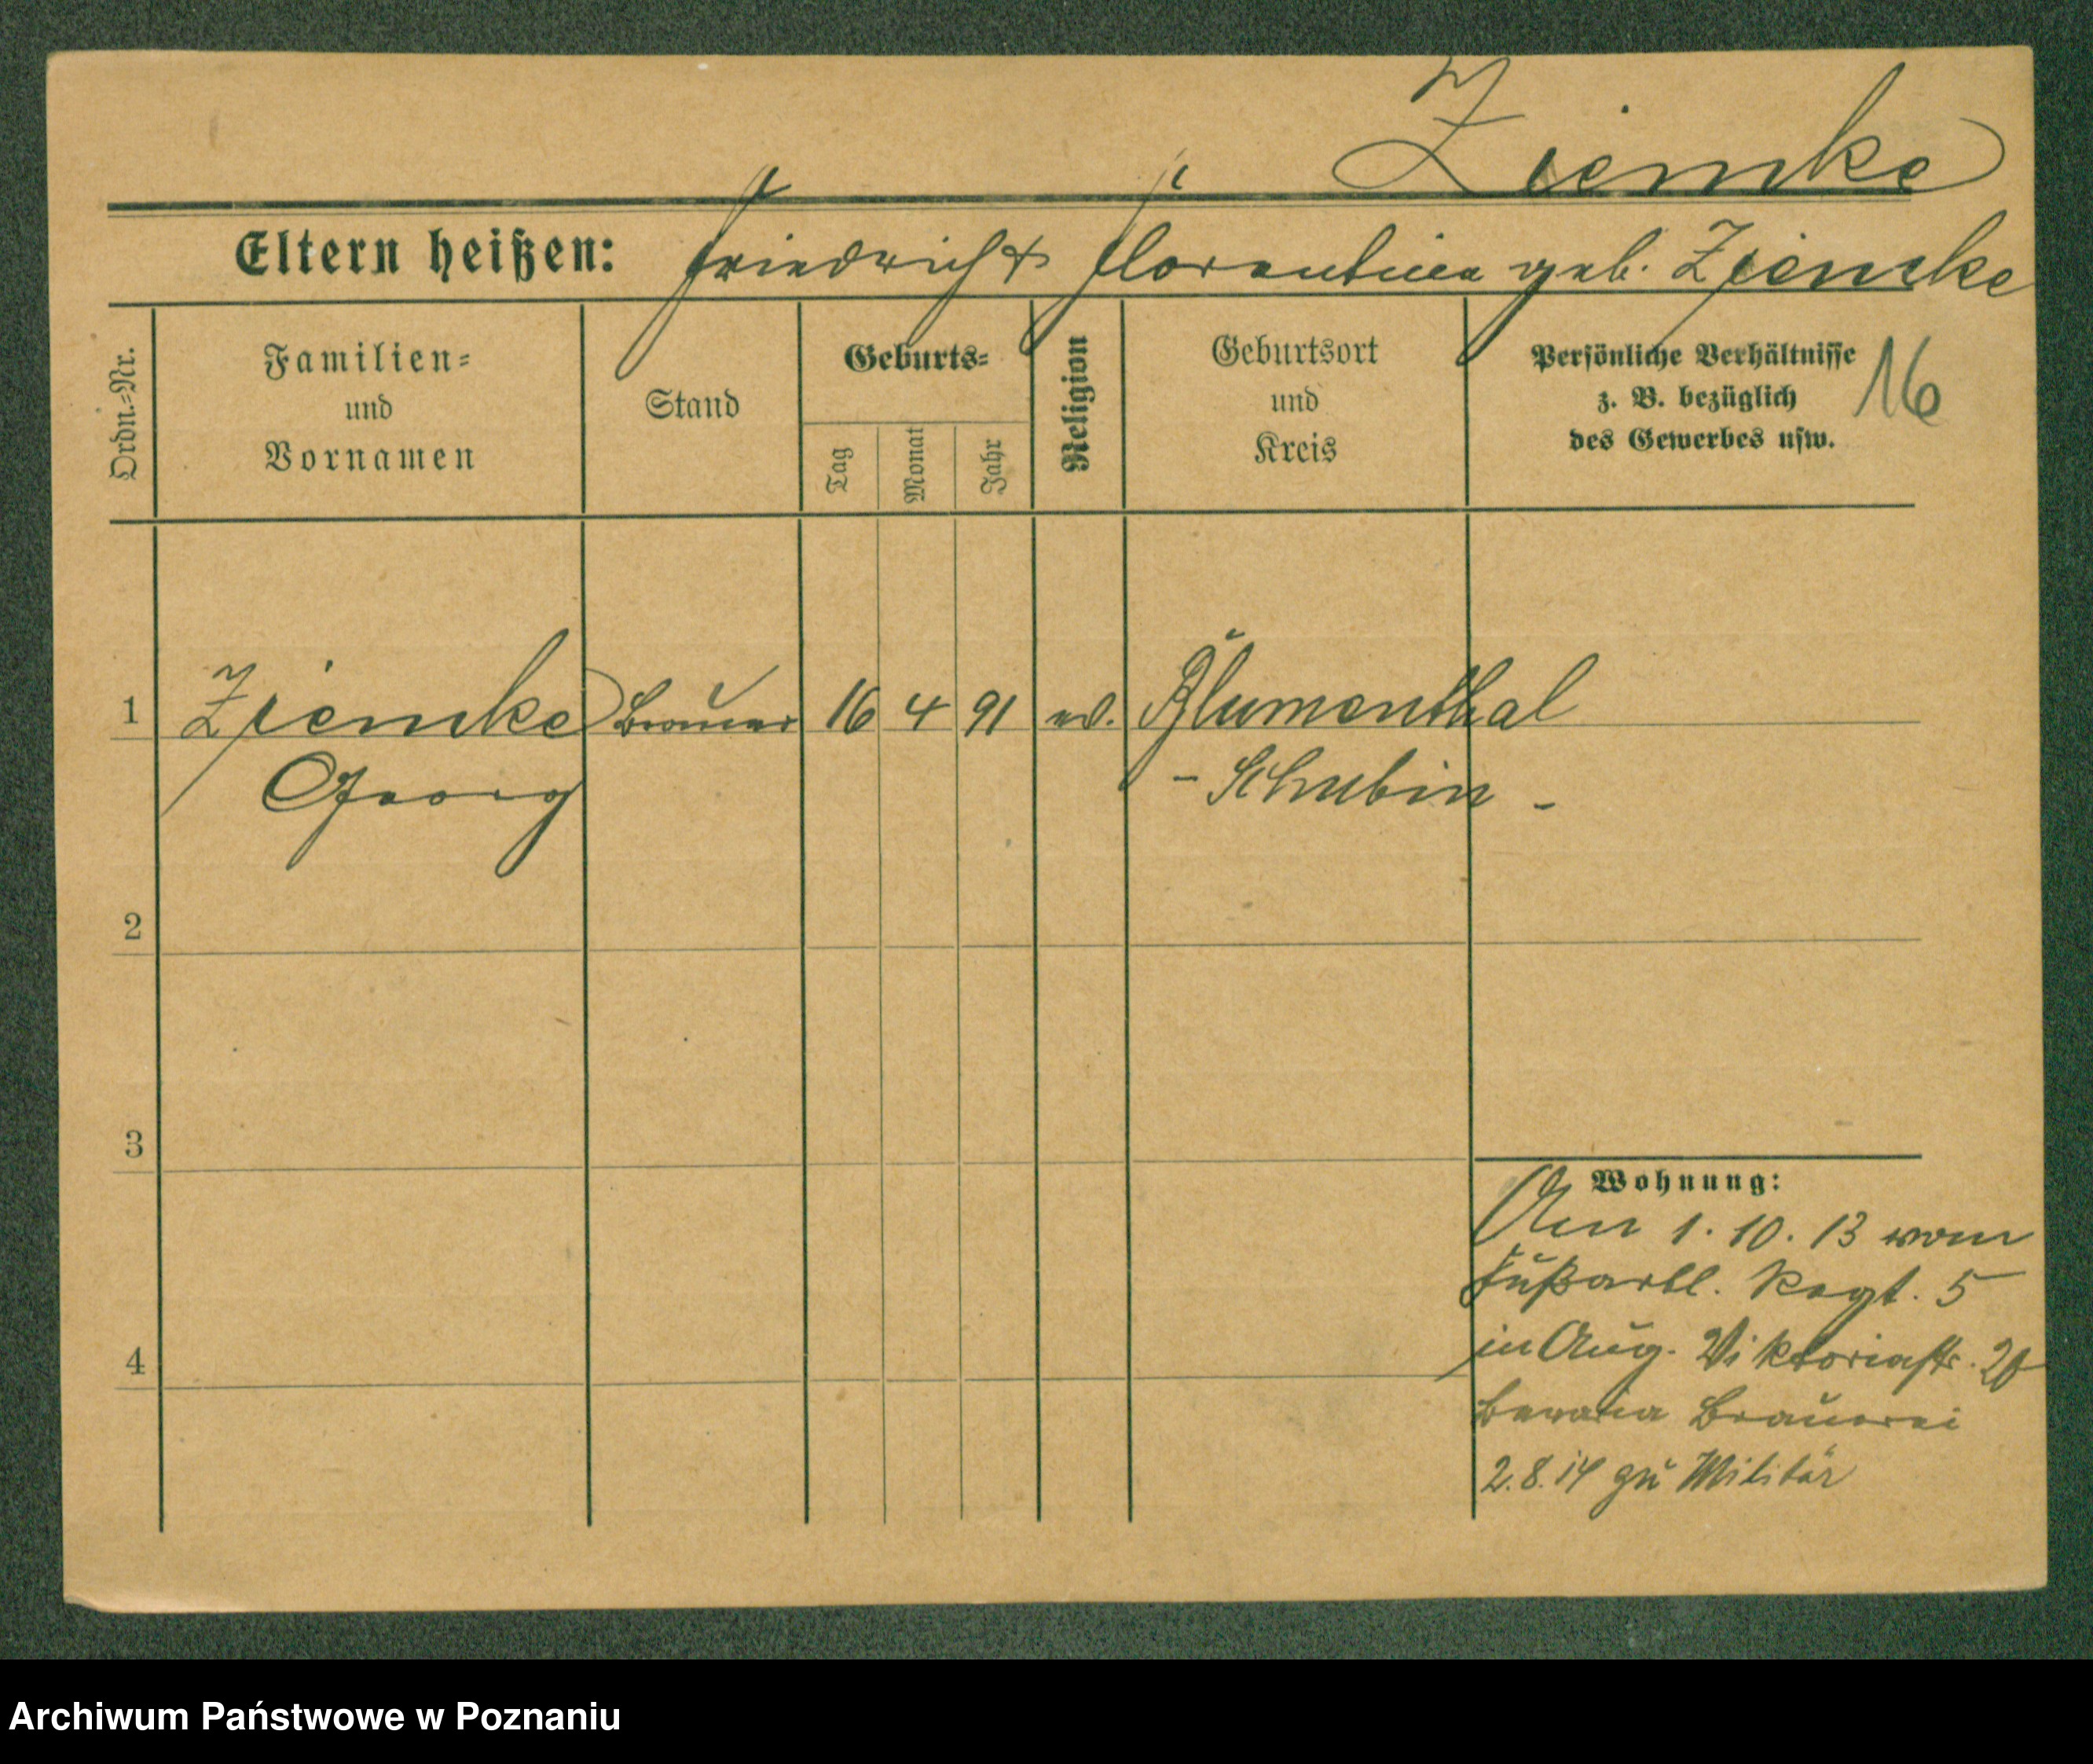 Ziemke
Eltern heißen: Friedrich & Florentine geb. Ziemke
Ordn.-Nr.
Familien-
und
Vornamen
Stand
Geburts-
Tag
Monat
Jahr
Religion
Geburtsort
und
Kreis
Persönliche Verhältnisse
z. B. bezüglich
des Gewerbes usw.
16
1 Ziemke Brauer 16 4 91 ev. Blumenthal
Georg - Schubin -
2
3
4
Wohnung:
Am 1. 10. 13 vom
Fußartl. Regt. 5
in Aug. Viktoriastr.
Bavaria Brauerei
2.8.14 zu Militär
Archiwum Państwowe w Poznaniu